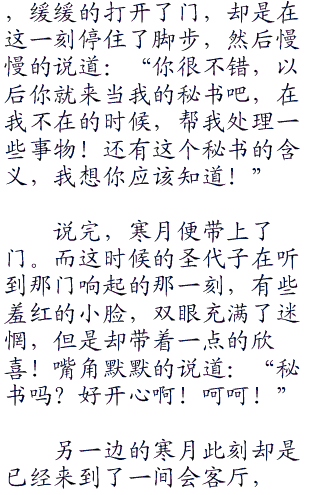 ，缓缓的打开了门，却是在
这一刻停住了脚步，然后慢
慢的说道：“你很不错，以
后你就来当我的秘书吧，在
我不在的时候，帮我处理一
些事物！还有这个秘书的含
义，我想你应该知道！”
说完，寒月便带上了
门。而这时候的圣代子在听
到那门响起的那一刻，有些
羞红的小脸，双眼充满了迷
惘，但是却带着一点的欣
喜！嘴角默默的说道：“秘
书吗？好开心啊！呵呵！”
另一边的寒月此刻却是
已经来到了一间会客厅，